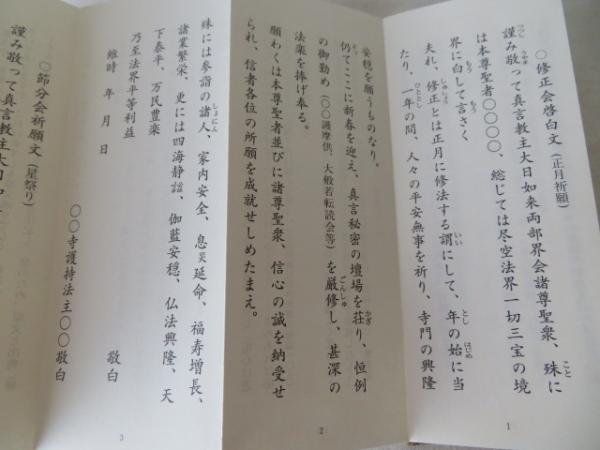 〇修正会啓白文(正月祈願)
謹み敬って真言教主大日如来両部界会諸尊聖衆、殊に
は本尊聖者〇〇〇〇、総じては尽空法界一切三宝の境
界に白して言さく
夫れ、修正とは正月に修法する謂にして、年の始に当
たり、一年の間、人々の平安無事を祈り、寺門の興隆
安穏を願うものなり。
仍てここに新春を迎え、真言秘密の壇場を荘り、恒例
の御勤め(〇〇護摩供、大般若転読会等)を厳修し、甚深の
法楽を捧げ奉る。
願わくは本尊聖者並びに諸尊聖衆、信心の誠を納受せ
られ、信者各位の所願を成就せしめたまえ。
殊には参詣の諸人、家内安全、息災延命、福寿増長、
諸業繁栄、更には四海静謐、伽藍安穏、仏法興隆、天
下泰平、万民豊楽
乃至法界平等利益
維時 年 月 日
〇〇寺護持法主〇〇敬白
敬白
〇節分会祈願文(星祭り)
謹み敬って真言教主大日
1
2
3